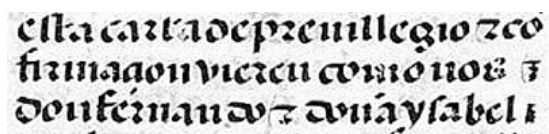 esta carta de preuillegio ⁊ co
firmaçion vieren commo nos ⁊
don fernando ⁊ doña ysabel